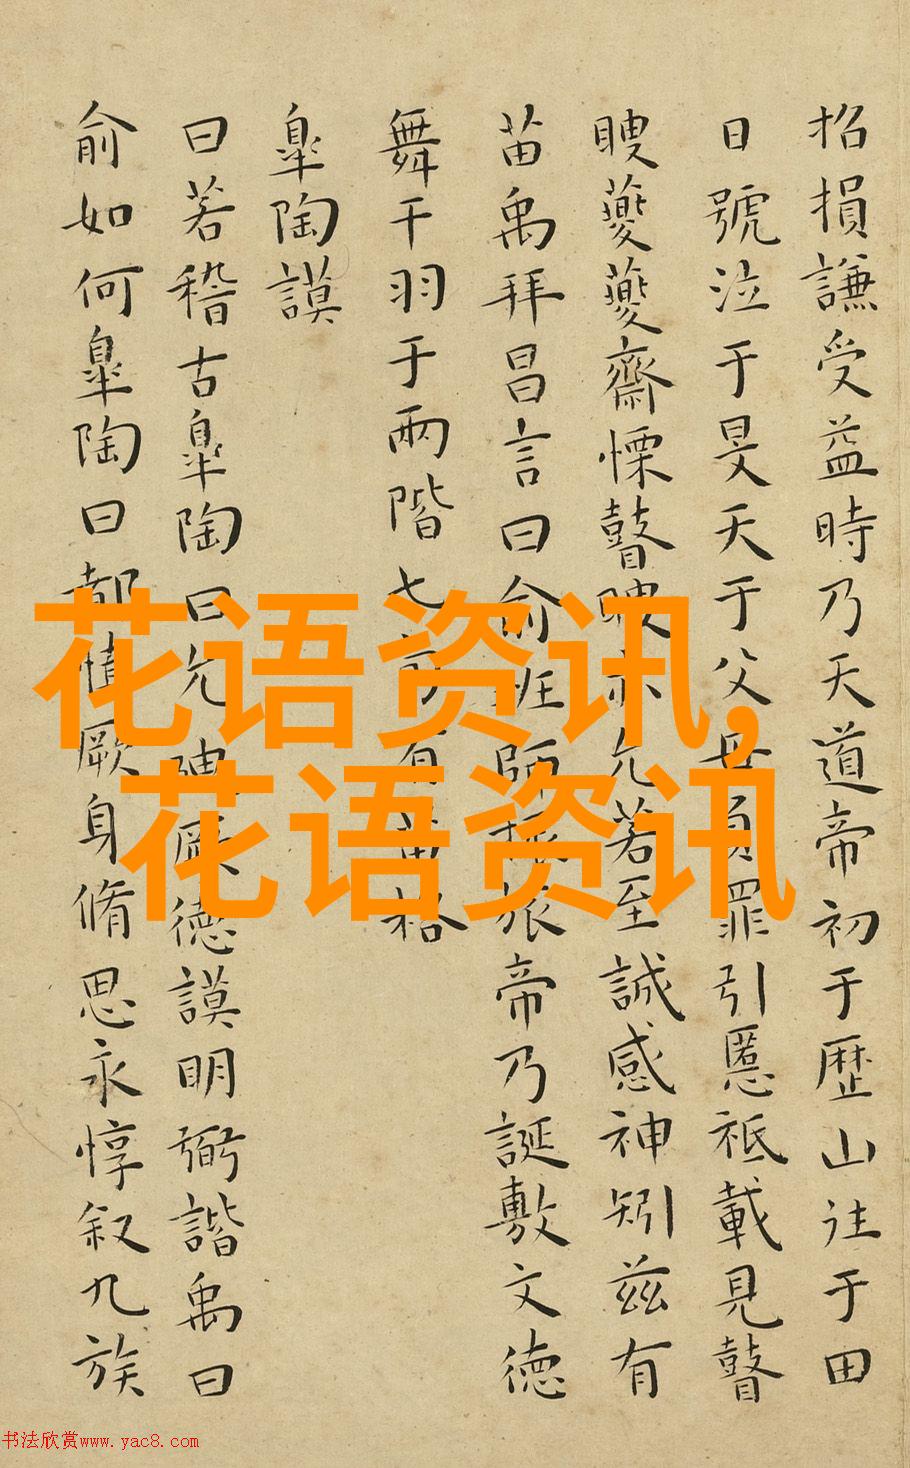 招損謙受益時乃天道帝初于歷山往于田
日號泣于旻天于父母負罪引慝祗載見瞽
瞍夔夔齋慄瞽瞍亦允若至誠感神矧茲有
苗禹拜昌言曰俞班師振旅帝乃誕敷文德
舞干羽于兩階七旬有苗格
皋陶謨
曰若稽古皋陶曰允迪厥德謨明弼諧禹曰
俞如何皋陶曰都慎厥身脩思永惇叙九族
花语资讯,
花语资讯
书法欣赏www.yac8.com